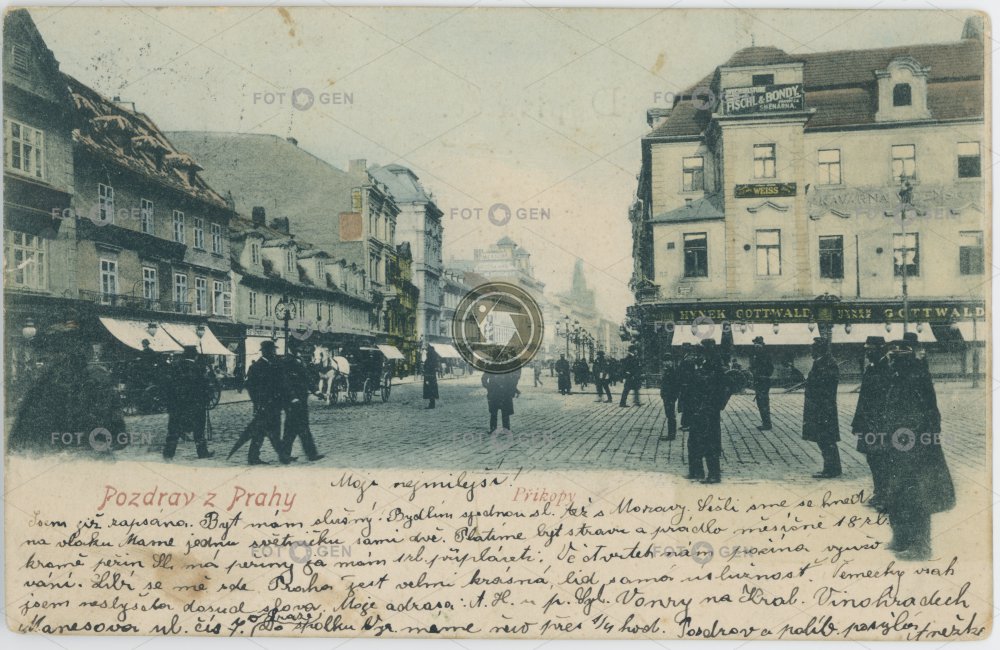 FISCHL & BONDY.
SMĚNÁRNA.
WEISS
KAVÁRNA
HYNEK GOTTWALD HYNEK GOTTWALD
FOTOGEN
Pozdrav z Prahy
Příkopy
Moji nejmilejší!
Jsem již zapsána. Byt mám slušný. Bydlím s jednou sl. též z Moravy. Sešli sme se hned
na vlaku. Máme jednu světničku sami dvě. Platíme byt stravu a prádlo měsíčně 18 zl.
kromě peřin. Sl. má peřiny já mám 1 zl. připláceti. Ve čtvrtek nám
vání. Líbí se mě zde. Praha jest velmi krásná, lid, samá uslužnost. Německy však
jsem neslyšela dosud slova. Moje adresa: A. H. u p. Vonry na Král. Vinohradech
Manesova ul. čís 7. Do spolku Vr. máme něco přes 1/4 hod. Pozdrav a políb. posýlá Anežka